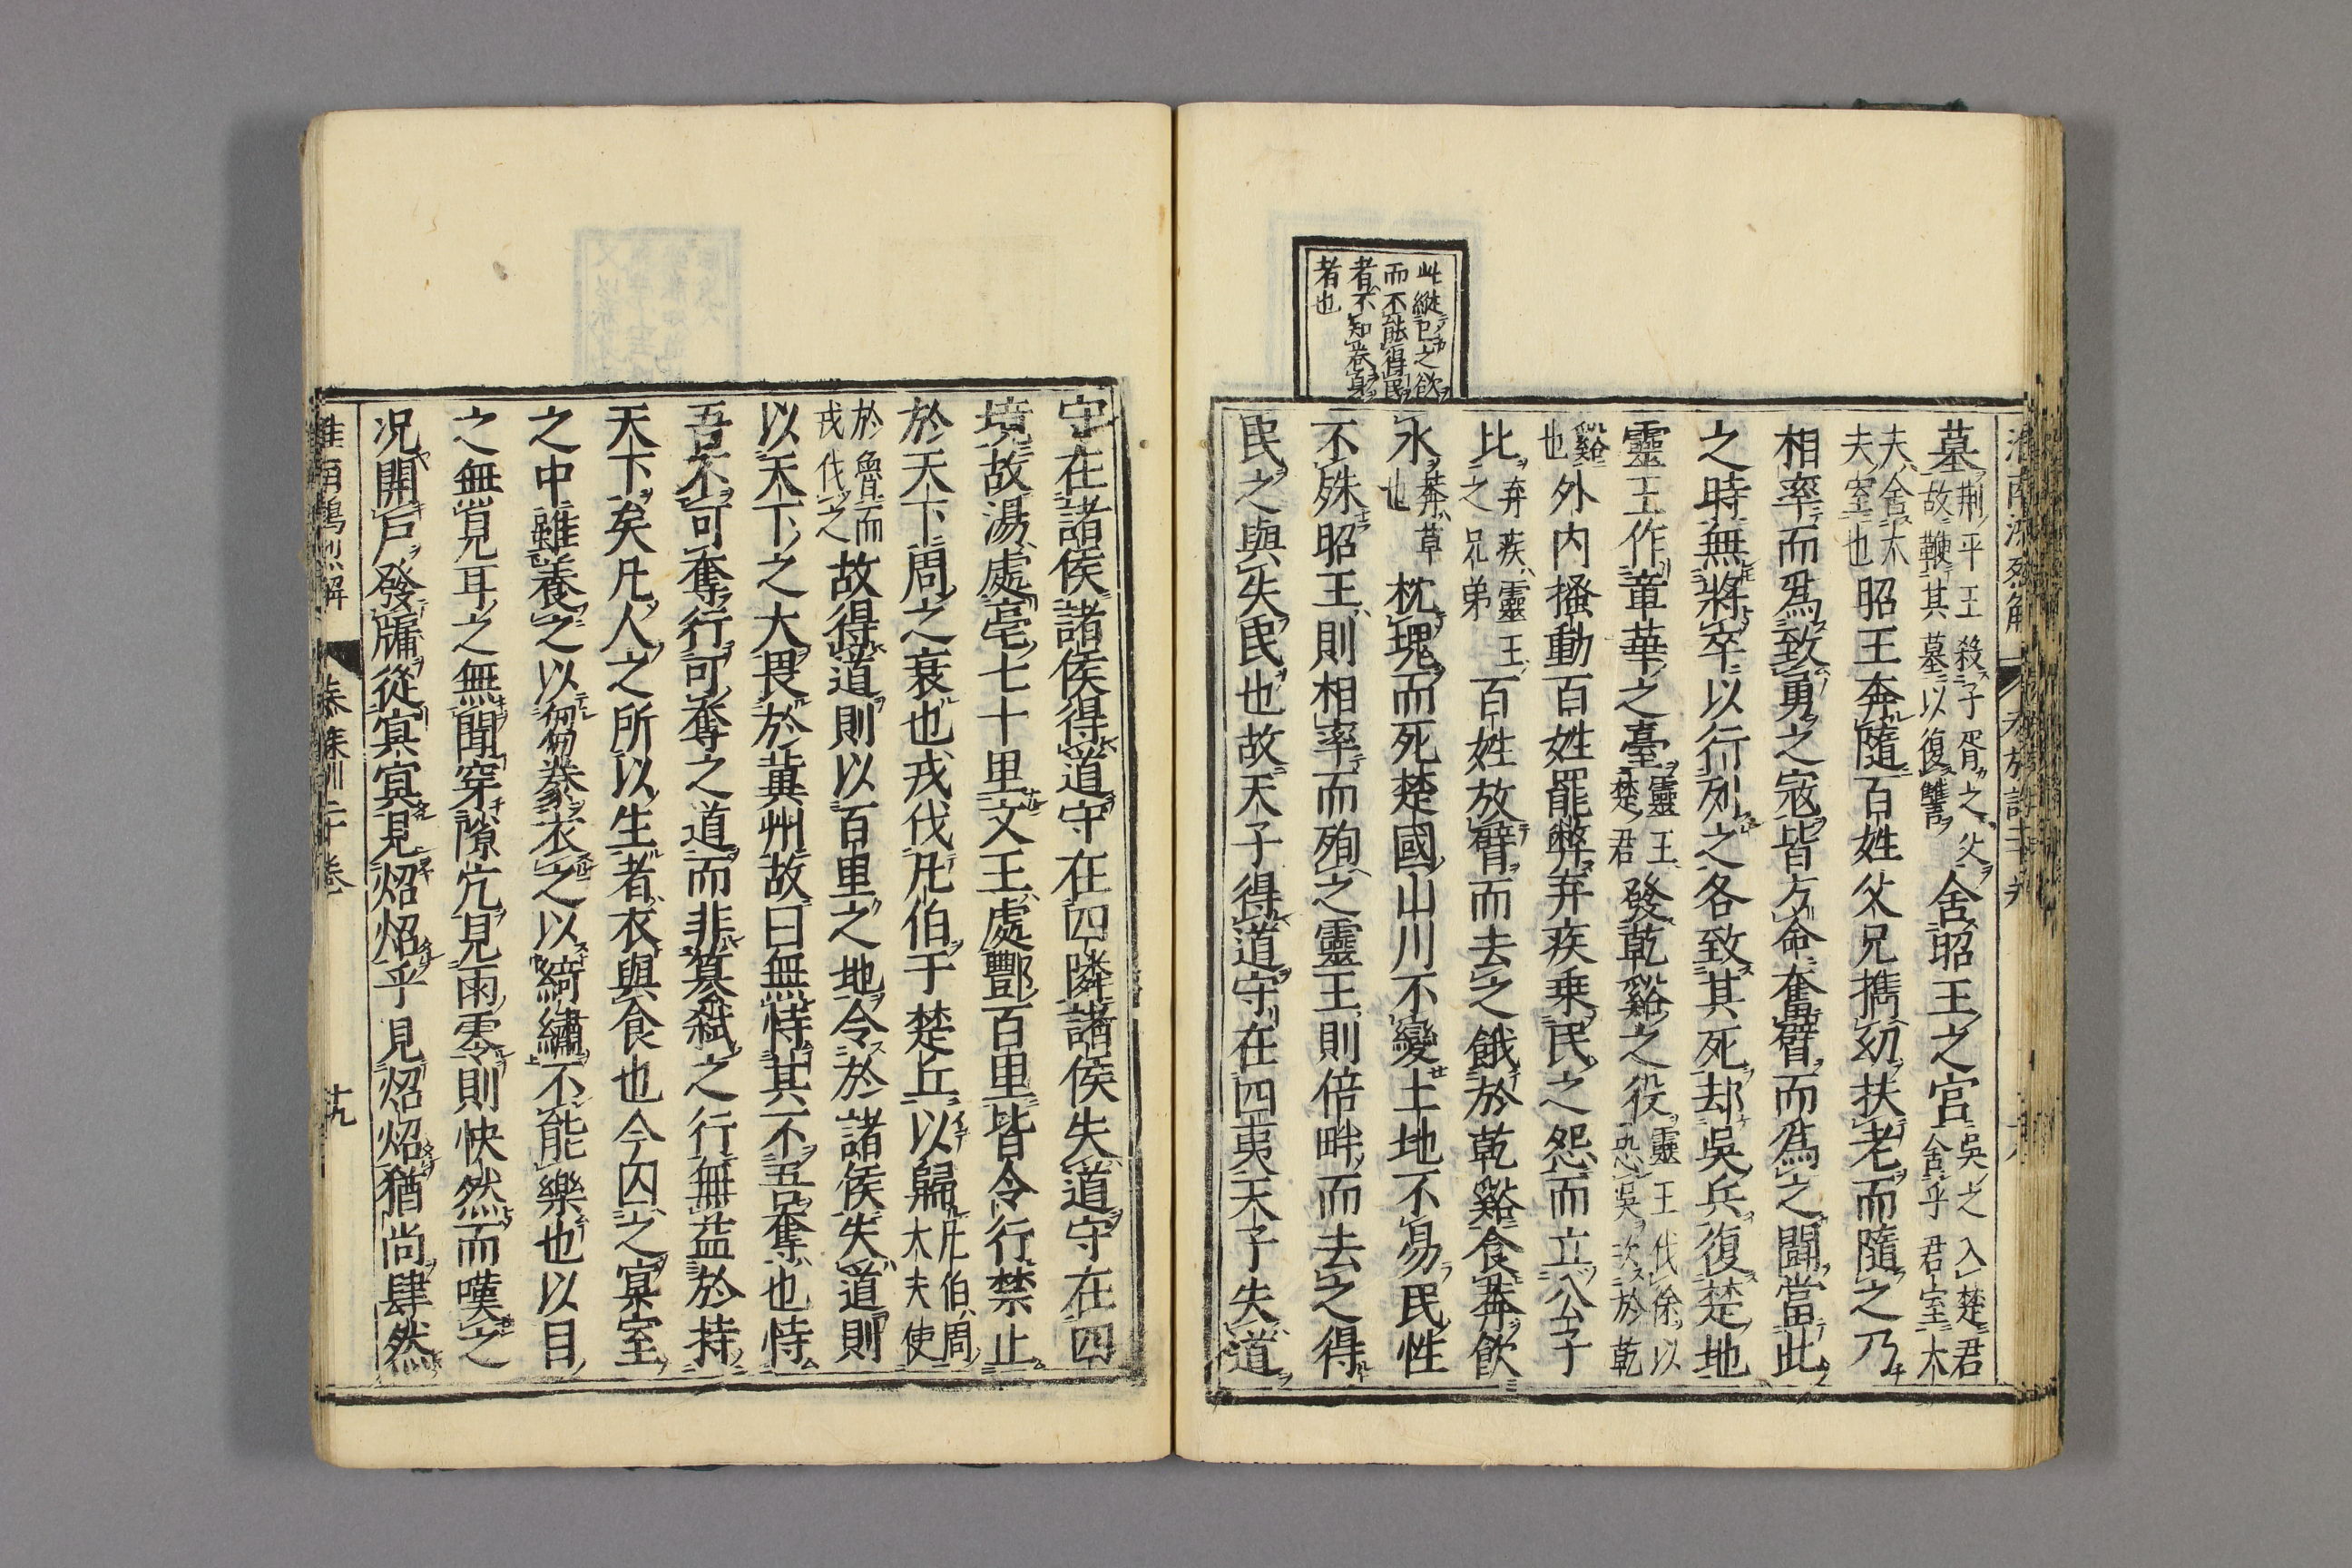 此縱己之欲
而不能得民
者不知養身
者也
墓荆平王殺子胥之父
故鞭其墓以復讐舍昭王之宮吳之入楚君
舍乎君室大
夫舍大
夫室也昭王奔隨百姓父兄攜幼扶老而隨之乃
相率而爲致勇之寇皆方命奮臂而爲之鬭當此
之時無將卒以行列之各致其死却吳兵復楚地
靈王作章華之臺靈王
楚君發乾谿之役靈王伐徐以
恐吳次於乾
谿
也外内搔動百姓罷弊弃疾乗民之怨而立公子
比弃疾靈王
之兄弟百姓放臂而去之餓於乾谿食莽飲
水莽草
也枕塊而死楚國山川不變土地不易民性
不殊昭王則相率而殉之靈王則倍畔而去之得
民之與失民也故天子得道守在四夷天子失道
守在諸侯諸侯得道守在四隣諸侯失道守在四
境故湯處亳七十里文王處酆百里皆令行禁止
於天下周之衰也戎伐凡伯于楚丘以歸凡伯周
大夫使
於魯而
戎伐之故得道則以百里之地令於諸侯失道則
以天下之大畏於冀州故曰無恃其不吾奪也恃
吾不可奪行可奪之道而非簒弑之行無益於持
天下矣凡人之所以生者衣與食也今囚之冥室
之中雖養之以芻豢衣之以綺繡不能樂也以目
之無見耳之無聞穿隙穴見雨零則快然而嘆之
况開戸發牖從冥冥見炤炤乎見炤炤猶尚肆然
淮南鴻烈解 泰族訓二十卷 十九